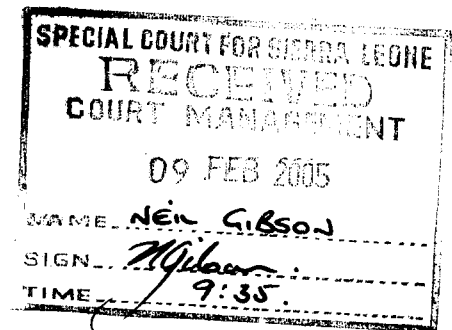 SPECIAL COURT FOR SIERRA LEONE
RECEIVED
COURT MANAGEMENT
09 FEB 2005
NAME NEIL GIBSON
SIGN NGibson.
TIME 9:35.